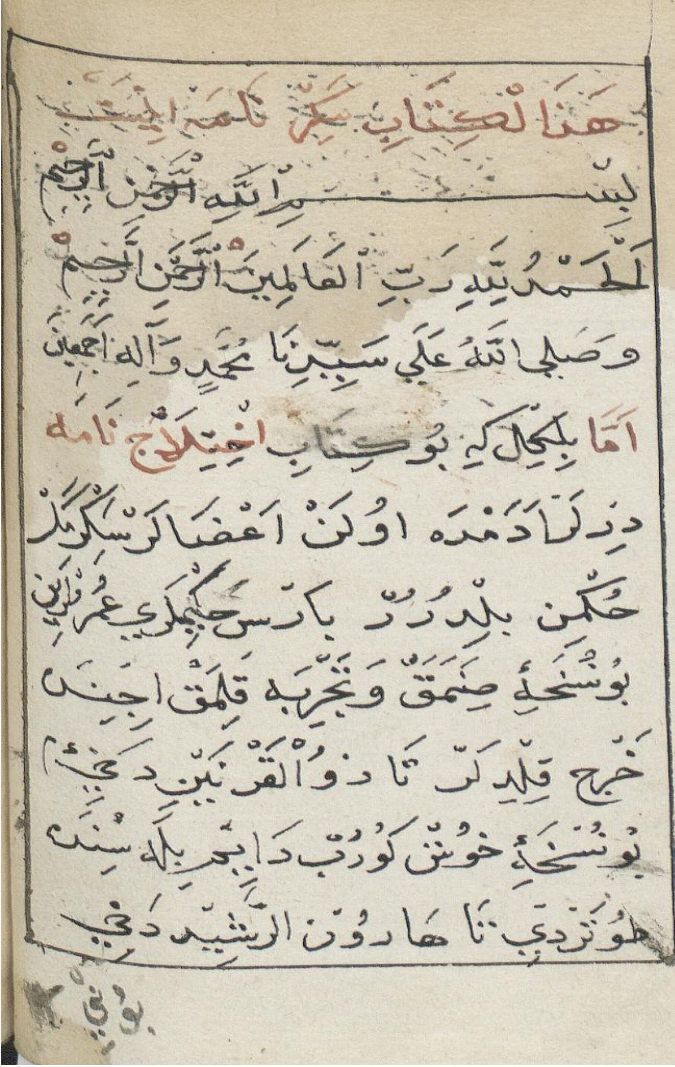 هَذَا الْكِتَابِ سَكِرْ نَامَه
بِسْمِ اللّٰهِ الرَّحْمٰنِ الرَّحِيمْ
اَلْحَمْدُ لِلّٰهِ رَبِّ الْعَالَمِينَ اَلرَّحْمٰنِ الرَّحِيمْ
وَصَلَي اللّٰهُ عَلَي سَيِّدِنَا مُحَمَّدٍ وَآلِهِ اَجْمَعِينَ
اَمَّا بِلْكِلْ كِه بُو كِتَابِ اخْتِلَاجْ نَامَه
اٰدَمْدَه اوُلَنْ اَعْضَالَرْ سَكِرْمَكْلَرْ
حُكْمِن بِلْدِرُرْ پارْسْ حَكِيمْلَرِي عُمُرْلَرِين
بُو نُسْخَهٔ وَتَجْرِبَه قِلْمَقْ اِچِنْدَه
خَرْج قِلْدِلَرْ تَا ذوُالْقَرْنَيْنِ دَخِي
بُو نُسْخَهٔ خوُشْ كوُرُبْ دَايِمْ بِلَه سِنْدَه
طوُتَرْدِي تَا هَاروُن الرَّشِيدْ دَخِي
بوُ